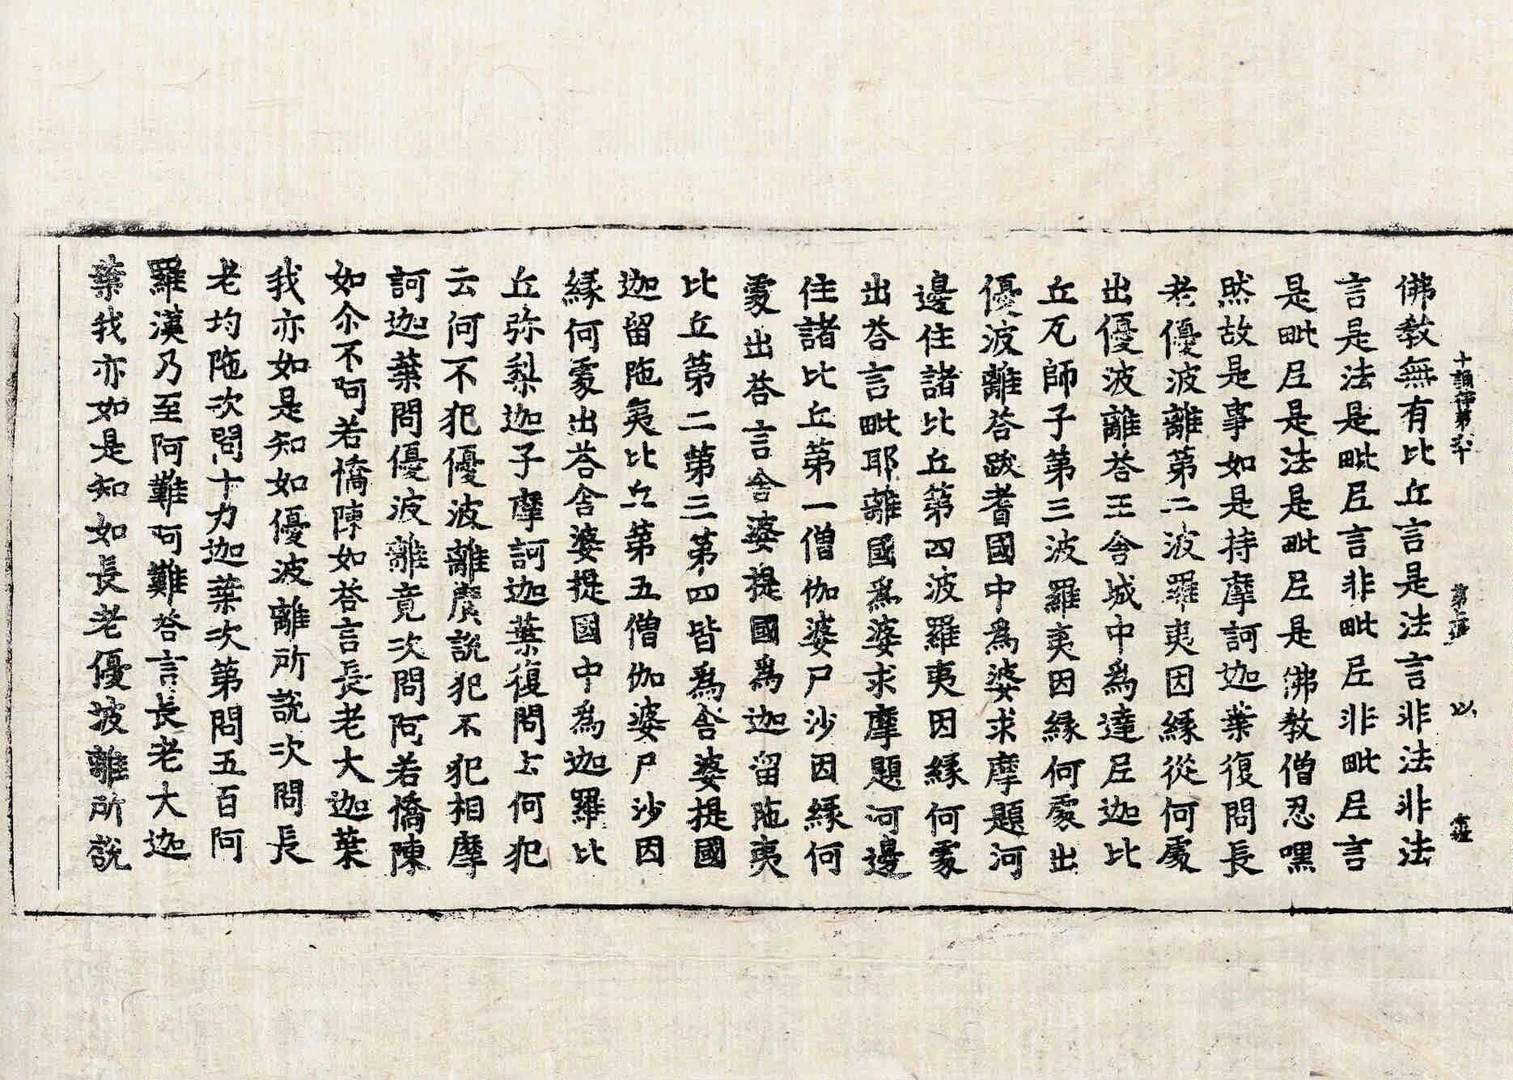 十誦律第六十 第二張 以
佛教無有比丘言是法言非法非法
言是法是毗尼言非毗尼非毗尼言
是毗尼是法是毗尼是佛教僧忍嘿
然故是事如是持摩訶迦葉復問長
老優波離第二波羅夷因緣從何處
出優波離荅王舍城中爲達尼迦比
丘瓦師子第三波羅夷因緣何處出
優波離荅跋耆國中爲婆求摩題河
邊住諸比丘第四波羅夷因緣何處
出荅言毗耶離國爲婆求摩題河邊
住諸比丘第一僧伽婆尸沙因緣何
處出荅言舍婆提國爲迦留陁夷
比丘第二第三第四皆爲舍婆提國
迦留陁夷比丘第五僧伽婆尸沙因
緣何處出荅舍婆提國中爲迦羅比
丘弥梨迦子摩訶迦葉復問云何犯
云何不犯優波離廣說犯不犯相摩
訶迦葉問優波離竟次問阿若憍陳
如尒不阿若憍陳如荅言長老大迦葉
我亦如是知如優波離所說次問長
老均陁次問十力迦葉次第問五百阿
羅漢乃至阿難阿難荅言長老大迦
葉我亦如是知如長老優波離所說